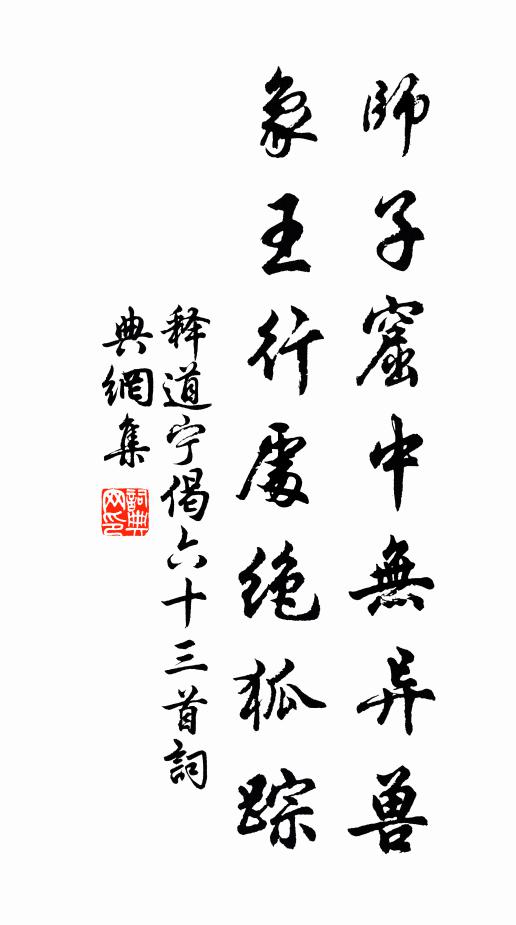 師子窟中無异兽
象王行處絶狐踪
释道宁偈六十三首詞
典網集
詞典網印